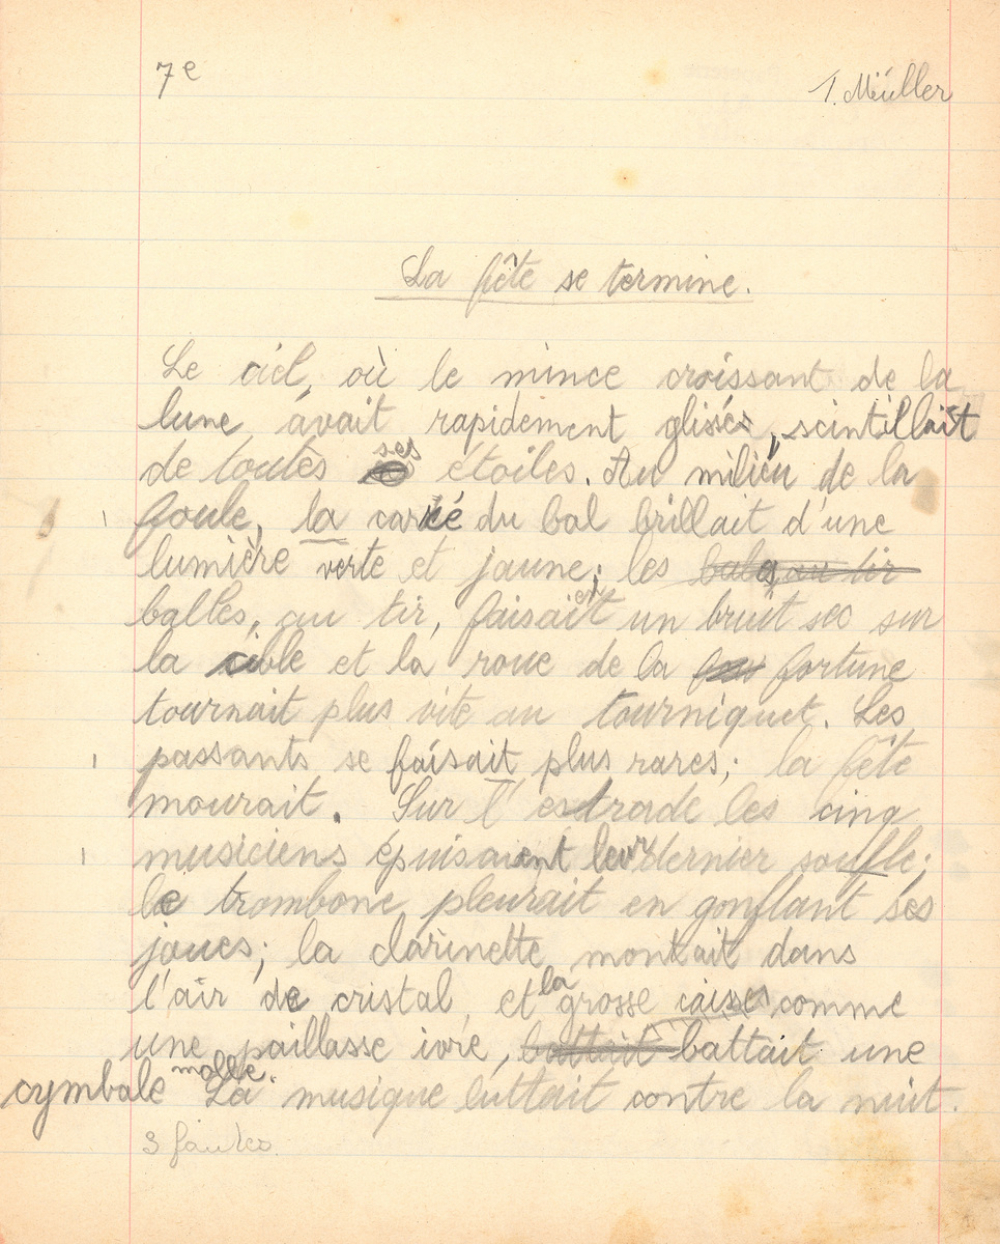 7e
J. Müller
La fête se termine.
Le ciel, où le mince croissant de la
lune avait rapidement glissés, scintillait
de toutes ses étoiles. Au milieu de la
foule, la carré du bal brillait d'une
lumière verte et jaune; les bals au tir
balles, au tir, faisaient un bruit sec sur
la cible et la roue de la fortune
tournait plus vite au tourniquet. Les
passants se faisait plus rares; la fête
mourait. Sur l'estrade les cinq
musiciens épuisaient leur dernier soufle;
le trombone pleurait en gonflant ses
joues; la clarinette montait dans
l'air de cristal, et la grosse caisse comme
une paillasse ivre, battait battait une
cymbale molle. La musique luttait contre la nuit.
3 fautes.